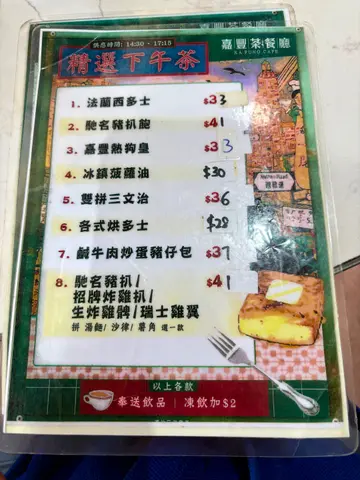 供應時間: 14:30 - 17:15
精選下午茶
嘉豐茶餐廳
KA FUNG CAFE
1. 法蘭西多士 $33
2. 馳名豬扒飽 $41
3. 嘉豐熱狗皇 $33
4. 冰鎮菠蘿油 $30
5. 雙拼三文治 $36
6. 各式烘多士 $28
7. 鹹牛肉炒蛋豬仔包 $37
8. 馳名豬扒/ $41
招牌炸雞扒/
生炸雞髀/瑞士雞翼
拼 湯麵/ 沙律/ 薯角 選一款
以上各款
奉送飲品 | 凍飲加$2